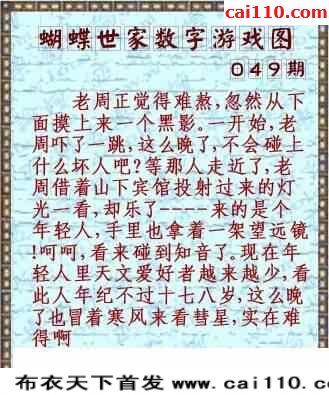 cai110.com
蝴蝶世家数字游戏图
049期
老周正觉得难熬,忽然从下
面摸上来一个黑影。一开始,老
周吓了一跳,这么晚了,不会碰上
什么坏人吧?等那人走近了,老
周借着山下宾馆投射过来的灯
光一看,却乐了----来的是个
年轻人,手里也拿着一架望远镜
!呵呵,看来碰到知音了。现在年
轻人里天文爱好者越来越少,看
此人年纪不过十七八岁,这么晚
了也冒着寒风来看彗星,实在难
得啊
布衣天下首发 www.cai110.c